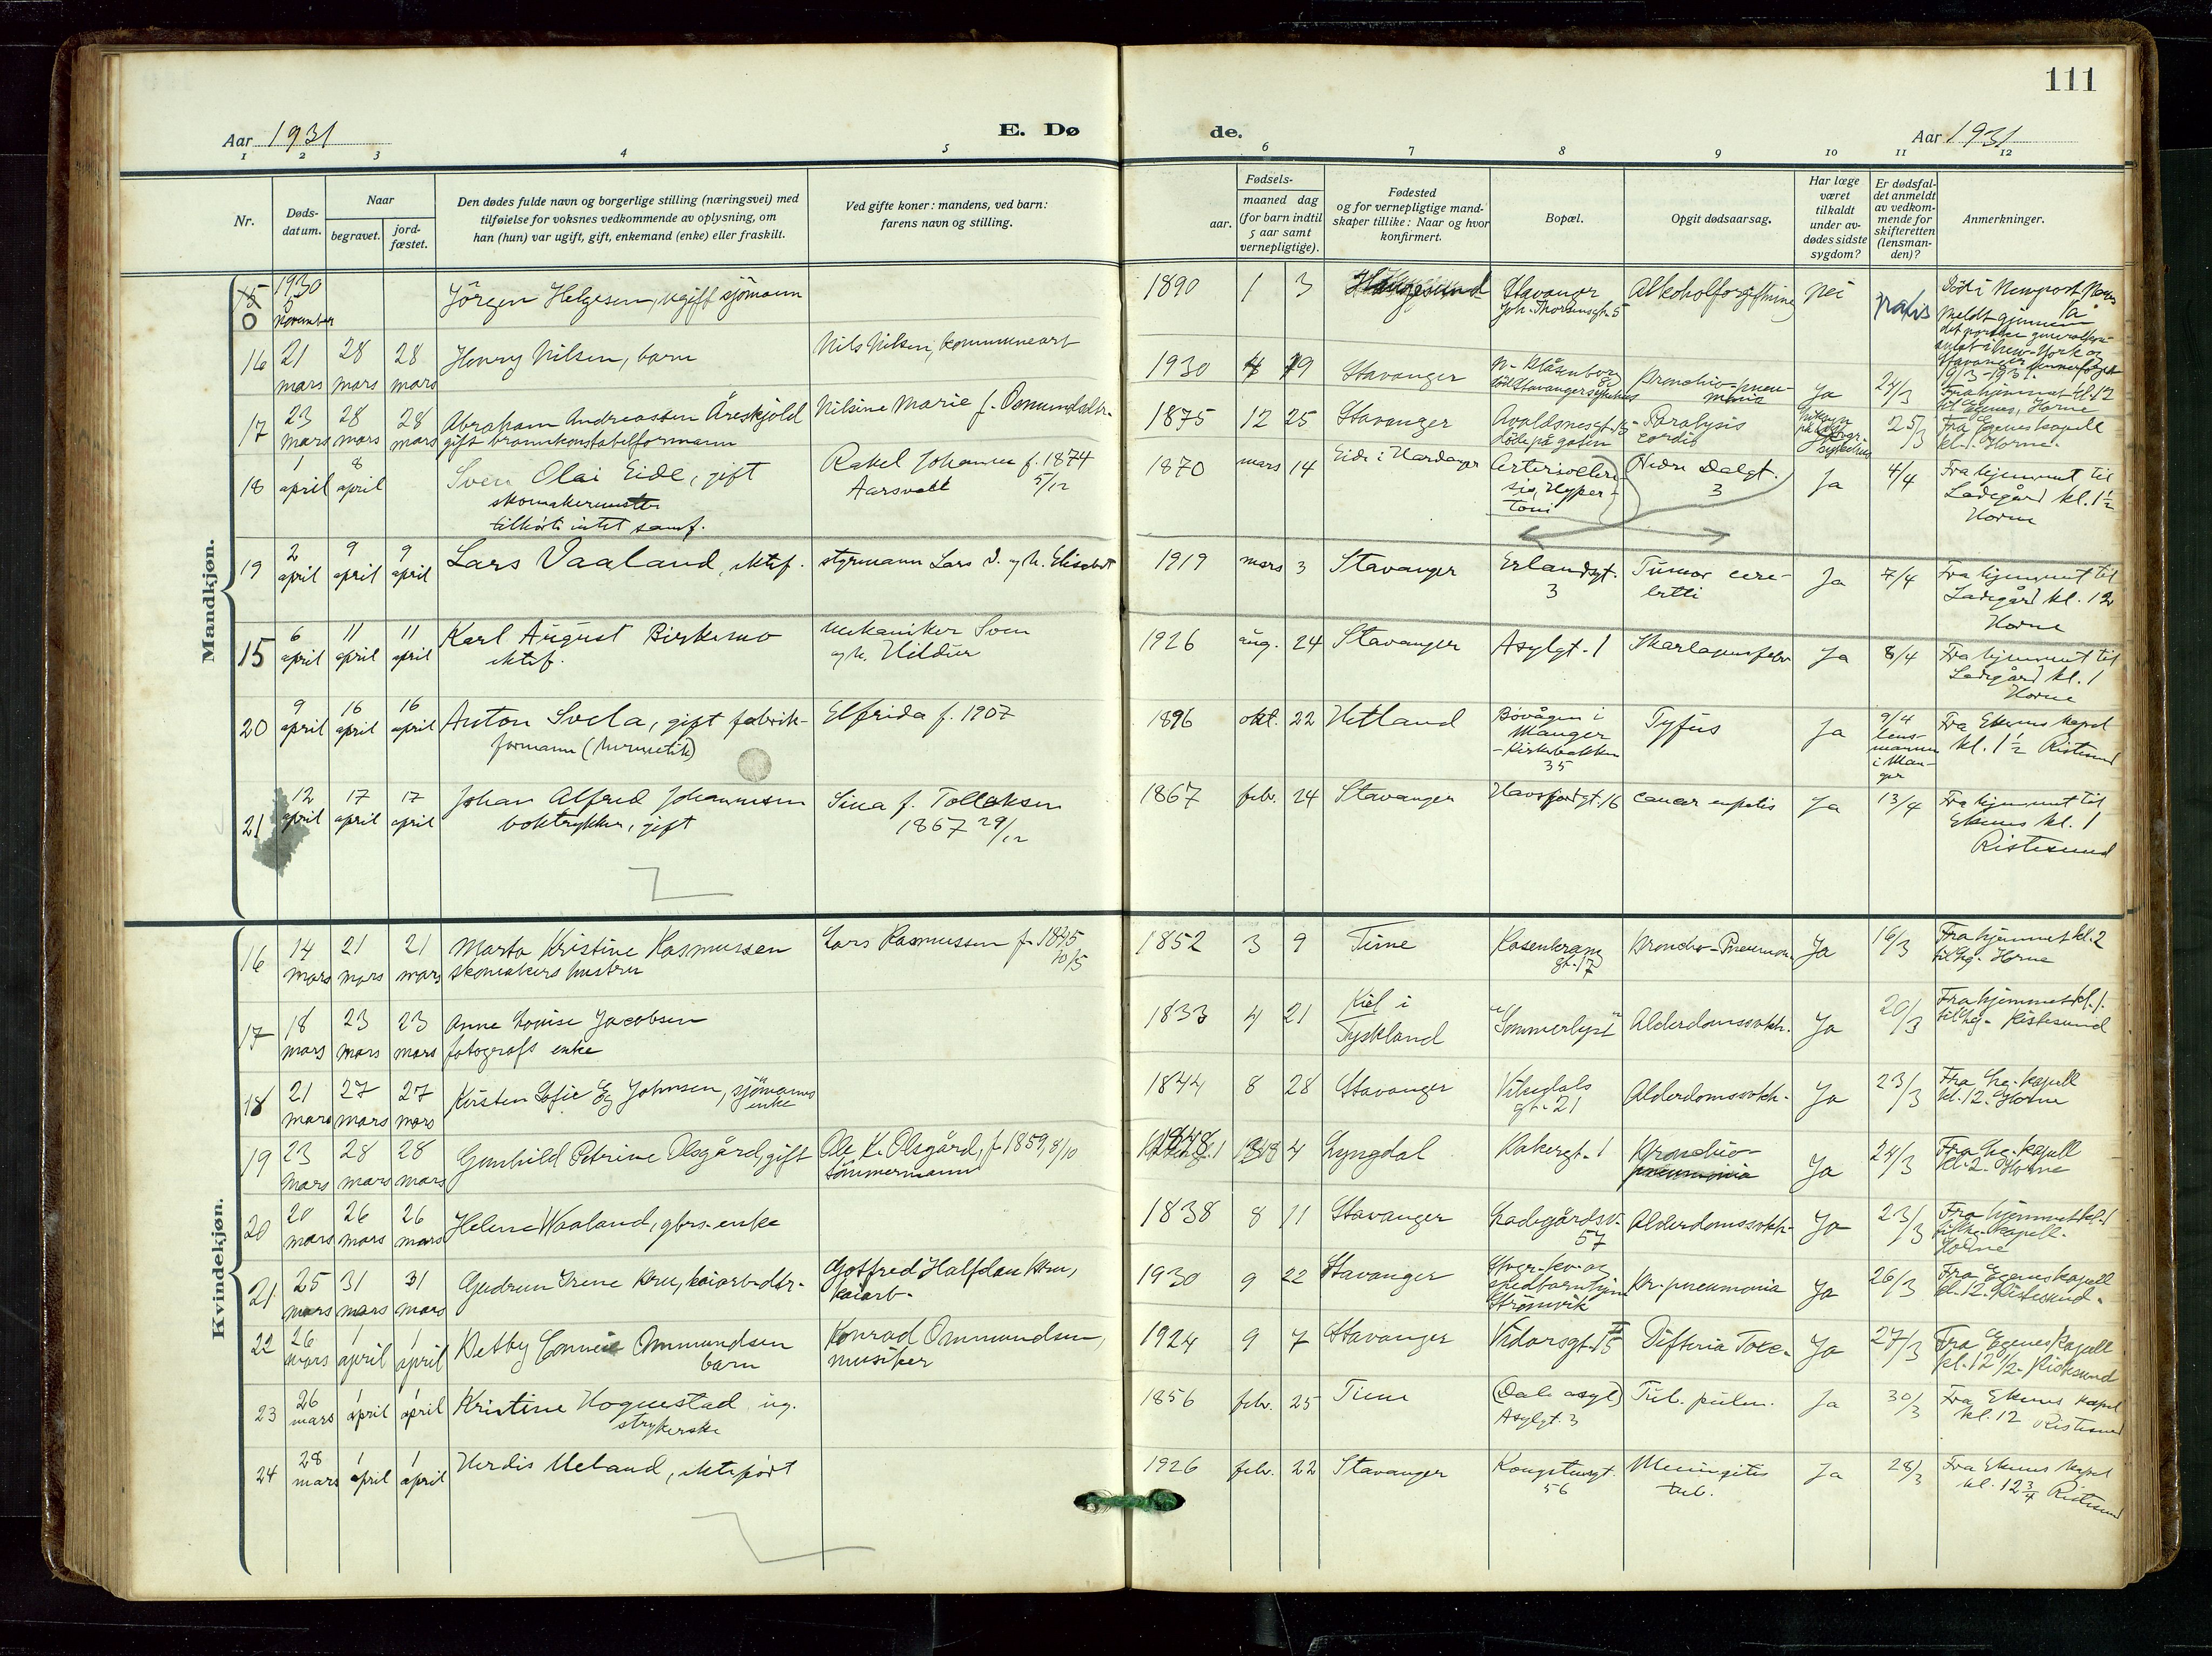 111
Aar 1931
E. Dø
de.
Aar 1931
1 2 3 4 5 6 7 8 9 10 11 12
Nr.
Døds-
datum.
Naar
begravet.
jord-
fæstet.
Den dødes fulde navn og borgerlige stilling (næringsvei) med
tilføielse for voksnes vedkommende av oplysning, om
han (hun) var ugift, gift, enkemand (enke) eller fraskilt.
Ved gifte koner: mandens, ved barn:
farens navn og stilling.
Fødsels-
aar.
maaned dag
(for barn indtil
5 aar samt
vernepligtige).
Fødested
og for vernepligtige mand-
skaper tillike: Naar og hvor
konfirmert.
Bopæl.
Opgit dødsaarsag.
Har læge
været
tilkaldt
under av-
dødes sidste
sygdom?
Er dødsfal-
det anmeldt
av vedkom-
mende for
skifteretten
(lensman-
den)?
Anmerkninger.
Mandkjøn.
15 0 1930 5 November Jörgen Helgesen, ugift sjömann 1890 1 3 Haugesund Stavanger Joh. Thorsensgt. 5 Alkoholforgiftning nei gratis Död i Newport News
meldt gjennem
det norske generalkon-
sulat i New-York og
Stavanger
16 21 mars 28 mars 28 mars Henry Nilsen, barn Nils Nilsen, kommunearb 1930 4 19 Stavanger Ja 24/3 Fra hjemmet kl. 12
til Egenes, Horne
17 23 mars 28 mars 28 mars Abraham Andreassen Åreskjold
gift brannkonstabelformann Nilsine Marie f. Osmundsdtr. 1875 12 25 Stavanger Avaldsnesgt.
döde på gaten Paralysis
cordis 25/3 Fra Egenes kapell
kl. 1. Horne.
18 1 april 8 april Sven Olai Eide, gift
skomakermester
tilhörte intet samf. Rakel Johanne f. 1874
Aarsvoll 5/12 1870 mars 14 Eide i Hardanger Arteriosclero-
sis, Hyper-
toni Nedre Dalgt.
3 Ja 4/4 Fra hjemmet til
Ladegård kl. 1½
Horne
19 2 april 9 april 9 april Lars Vaaland, ektef. styrmann Lars V. og h. Elisabet 1919 mars 3 Stavanger Erlandsgt.
3 Tumor cere-
belli Ja 7/4 Fra hjemmet til
Ladegård kl. 12
Horne
15 6 april 11 april 11 april Karl August Birkemo
ektef. mekaniker Sven
og h. Hildur 1926 aug. 24 Stavanger Asylgt. 1 Skarlagensfeber Ja 8/4 Fra hjemmet til
Ladegård kl. 1
Horne
20 9 april 16 april 16 april Anton Svela, gift fabrik-
formann (hermetik) Elfrida f. 1907 1896 okt. 22 Hetland Bövågen i
Manger
- Kirkebakken
35 Tyfus Ja 9/4
lens-
mannen
i Man-
ger Fra Ekenes kapel
kl. 1½ Ristesund
21 12 april 17 april 17 april Johan Alfred Johannesen
boktrykker, gift Sina f. Tollaksen
1867 29/12 1867 febr. 24 Stavanger Havsfjordgt. 16 cancer Ja 13/4 Fra hjemmet til
Ekenes kl. 1
Ristesund
Kvindekjøn.
16 14 mars 21 mars 21 mars Marta Kristine Rasmussen
skomakers hustru Lars Rasmussen f. 1845
10/5 1852 3 9 Time Rosenkranz
gt. 17 Broncho-Pneumon. Ja 16/3 Fra hjemmet kl. 2
til Eg. Horne
17 18 mars 23 mars 23 mars Anne Lovise Jacobsen
fotografs enke 1833 4 21 Kiel i
Tyskland "Sommerlyst" Alderdomssvakh. Ja 20/3 Fra hjemmet kl. 1.
til Eg. Ristesund
18 21 mars 27 mars 27 mars Kirsten Sofie Eg Johnsen, sjömanns
enke 1844 8 28 Stavanger Vibedals
gt. 21 Alderdomssvakh. Ja 23/3 Fra Eg. kapell
kl. 12. Horne
19 23 mars 28 mars 28 mars Gunhild Petrine Olsgård, gift Ole K. Olsgård, f. 1859, 8/10
tömmermann 1848 4 Lyngdal Bakergt. 1 Bronchio-
pneumonia Ja 24/3 Fra Eg. kapell
kl. 2. Horne
20 20 mars 26 mars 26 mars Helene Waaland, gbrs. enke 1838 8 11 Stavanger Ladegårdsv.
57 Alderdomssvakh. Ja 23/3 Fra hjemmet kl. 1
til Eg. kapell.
Horne
21 25 mars 31 mars 31 mars Gudrun Irene Bru, kaiarb. dtr. Gotfred Halfdan Bru,
kaiarb. 1930 9 22 Stavanger Stvgr. kv. og
spedbarnhjem
Strömvik Br. pneumonia Ja 26/3 Fra Egenes kapell
kl. 12. Ristesund.
22 26 mars 1 april 1 april Betsy Connie Ommundsen
barn Konrad Ommundsen,
musiker 1924 9 7 Stavanger Vidarsgt. 15 Difteria Toxe. Ja 27/3 Fra Egenes kapell
kl. 12 1/2. Ristesund
23 26 mars 1 april 1 april Kristine Hognestad ug.
strykerske 1856 febr. 25 Time (Dale asyl)
Asylgt. 3 Tub. pulm. Ja 30/3 Fra Ekenes kapel
kl. 12 Ristesund
24 28 mars 1 april 1 april Herdis Meland, ektefødt 1926 febr. 22 Stavanger Kongstensgt.
56 Meningitis
tub. Ja 28/3 Fra Ekenes kapel
kl. 12¾ Ristesund